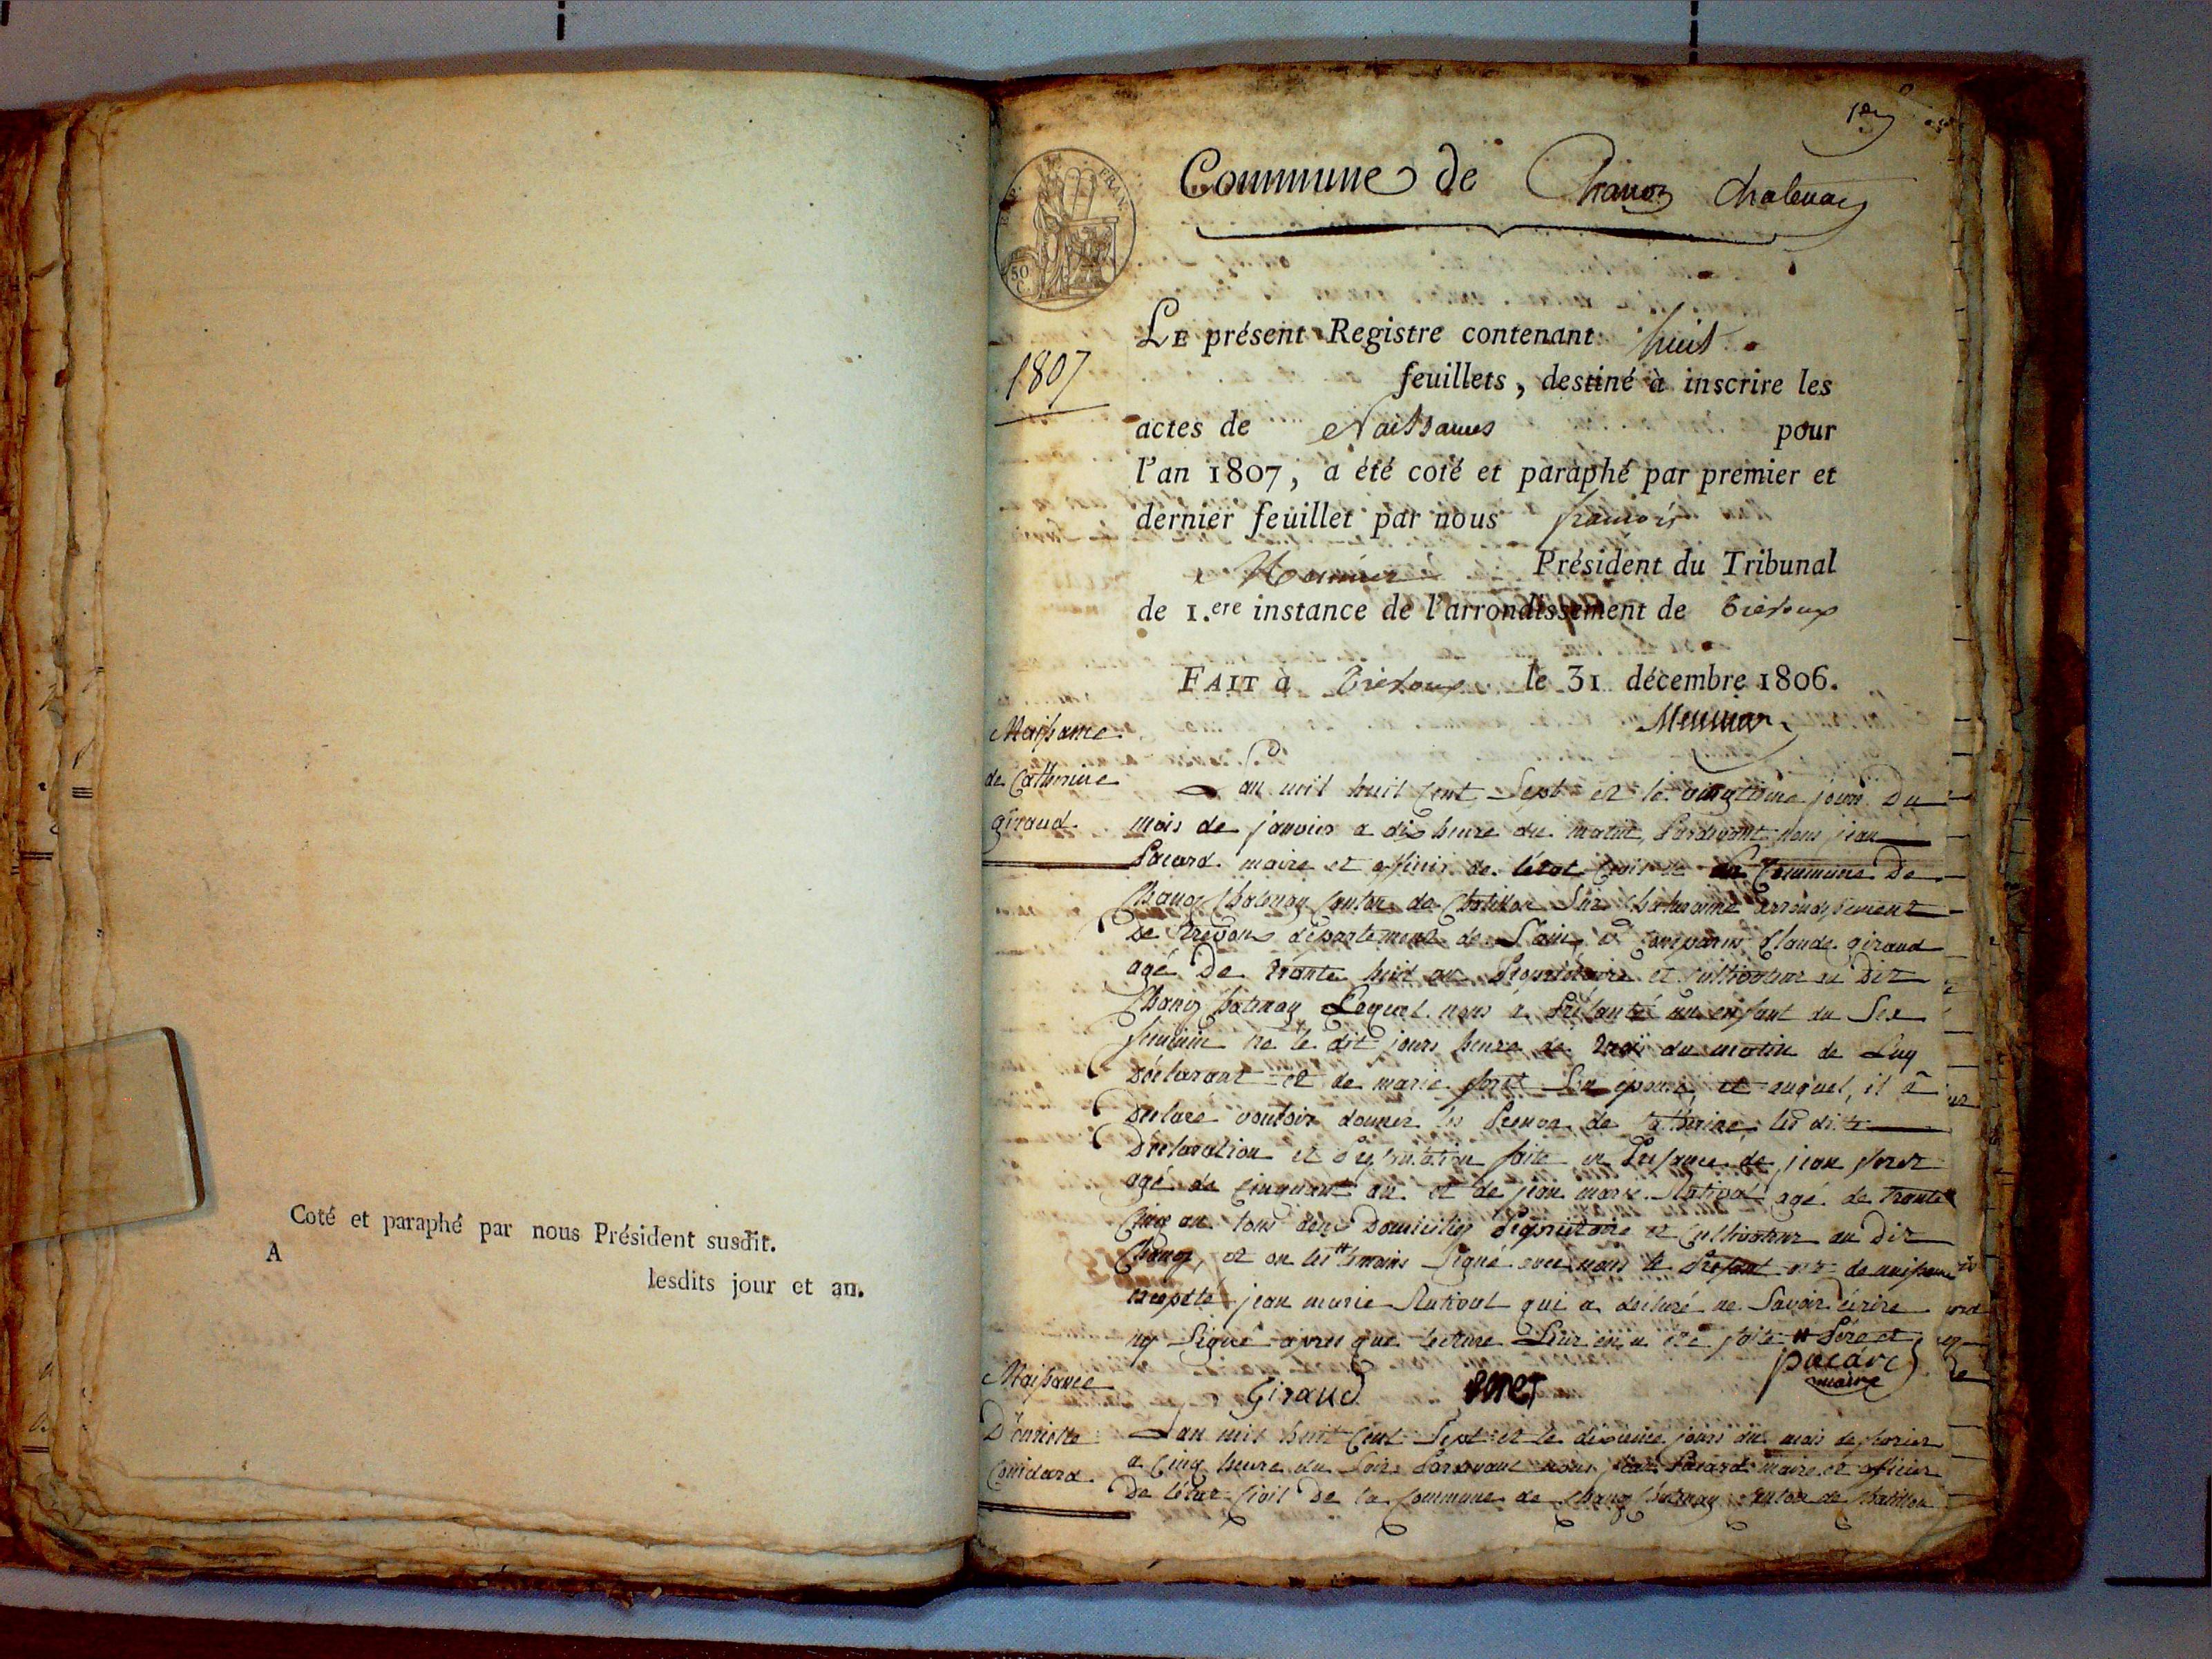 Coté et paraphé par nous Président susdit.
A
lesdits jour et an.
1er
Commune de Chanoz Chatenay
EMP. FRAN.
50
C.
1807
LE présent Registre contenant huit
feuillets, destiné à inscrire les
actes de Naissances pour
l'an 1807, a été coté et paraphé par premier et
dernier feuillet par nous françois
Meunier Président du Tribunal
de 1.ere instance de l'arrondissement de Trévoux
FAIT à Trévoux le 31 décembre 1806.
Meunier
Naissance
de Catherine
giraud
L an mil huit Cent Sept et le vingtième jour Du
mois de janvier a dix heure du matin, Pardevant nous jean
Pacard maire et officier de létat Civil de la Commune De
Chanoz Chatenay Canton de Chatillon Sur Chalaronne arrondissement
De Trevoux département de Lain, a comparus Claude giraud
agé De trante huit an Propriétaire et Cultivateur au Dit
Chanoz Chatenay Lequel nous à Présanté un enfant du Sex
feminin né le dit jours heure de trois du matin de Luy
Déclarant et de marie foret Son épouse, et auquel, il a
Déclare vouloir donner les Prenon de Catherine, les dite
Déclaration et Présentation faite en Présance de jean foret
agé de Cinquant an et de jean marie agé de trante
Cinq an tous deux Domicilies Propriétaire et Cultivateur au Dit
Chanoz, et on les # témoins Signé avec nous le Présant acte de naissance
excepté jean marie qui a déclaré ne Savoir écrire
ny Signé apres que lecture Leur en a été faite # Père et
Giraud foret pacard
maire
Naissance
D'enriette
Convert
L an mil huit Cent Sept et le dixieme jours du mois de fevrier
a Cinq heure du Soir Pardevant nous jean Pacard maire et officier
De létat Civil De la Commune de Chanoz Chatenay Canton de Chatillon